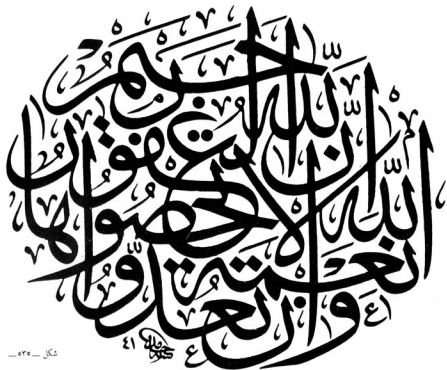 وَإِن تَعُدُّوا نِعْمَةَ اللهِ لَا تُحْصُوهَا إِنَّ اللهَ لَغَفُورٌ رَحِيمٌ
٤١
شكل ـ ٥٣٥ ـ